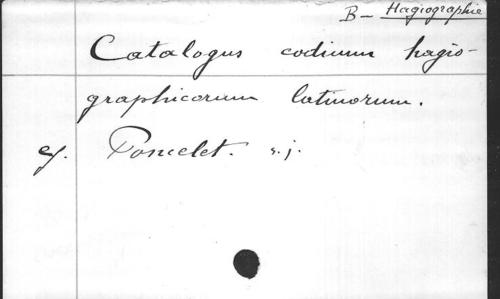 B — Hagiographie
Catalogus codicum hagio-
graphicorum latinorum.
cf. Poncelet. s. j.